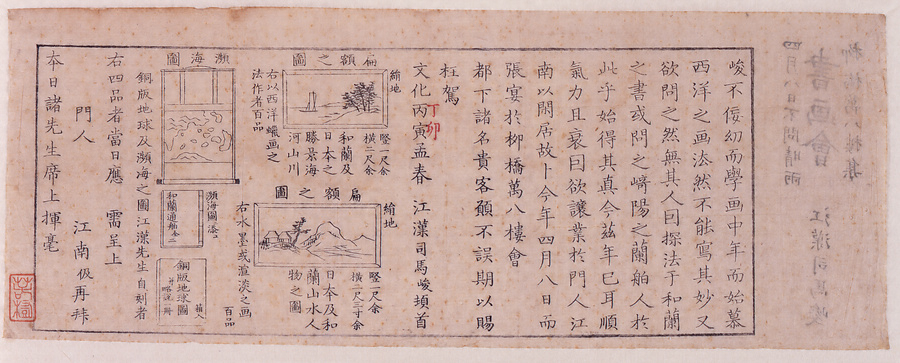 峻不佞幼而學画中年而始慕
西洋之画法然不能寫其妙又
欲問之然無其人因探法于和蘭
之書或問之崎陽之蘭舶人於
此乎始得其真今茲年已耳順
氣力且衰因欲讓業於門人江
南以閑居故卜今年四月八日而
張宴於柳橋萬八樓會
都下諸名貴客顧不誤期以賜
枉駕
文化丙寅孟春 江漢司馬峻頓首
丁卯
扁額之圖
繪地
竪一尺余
橫二尺余
和蘭及
日本之
勝景海
河山川
右以西洋蠟画之
法作者百品
扁額之圖
繪地
竪一尺余
橫二尺三寸余
日本及和
蘭山水人
物之圖
右水墨或渲淡之画
百品
瀕海圖
瀕海圖
和蘭通舶
銅版地球圖
銅版地球及瀕海之圖江漢先生自刻者
右四品者當日應 需呈上
門人 江南伋再拜
本日諸先生席上揮毫
四月八日不問晴雨
書画會